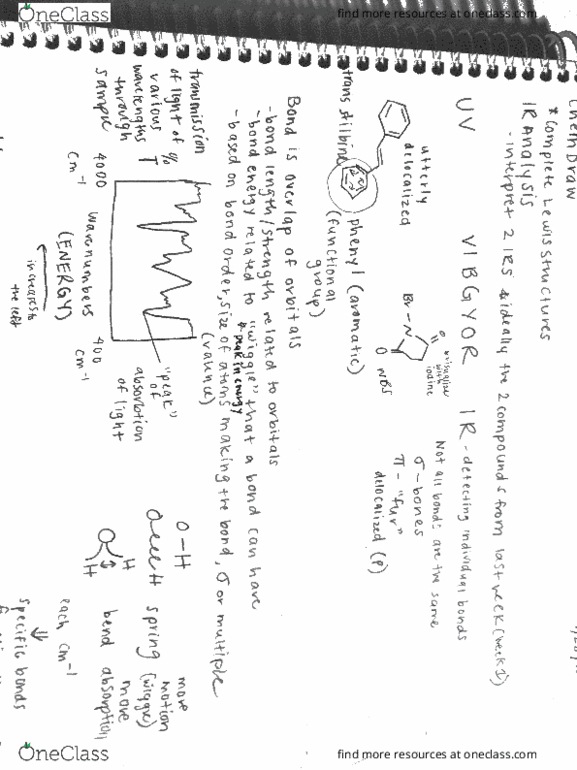 OneClass
find more resources at oneclass.com
ChemDraw
* Complete Lewis structures
IR Analysis
- interpret 2 IRs & ideally the 2 compounds from last week (week 1)
UV VIBGYOR IR - detecting individual bonds
Not all bonds are the same
σ - bones
π - "fur"
delocalized (p)
utterly
delocalized
trans stilbine
phenyl (aromatic)
(functional
group)
Br - N
O
O
NBS
with
iodine
Bond is overlap of orbitals
- bond length/strength related to orbitals
- bond energy related to "wiggle" that a bond can have
& peak in energy
- based on bond order, size of atoms making the bond, σ or multiple
(valence)
transmission
of light of
various
wavelengths
through
sample
%
T
4000
cm-1
wavenumbers
(ENERGY)
increases to
the left
400
cm-1
"peak"
of
absorbtion
of light
O-H
O H spring (wiggle)
more
motion
O H H bend
more
absorption
each cm-1
⇓
specific bonds
OneClass
find more resources at oneclass.com